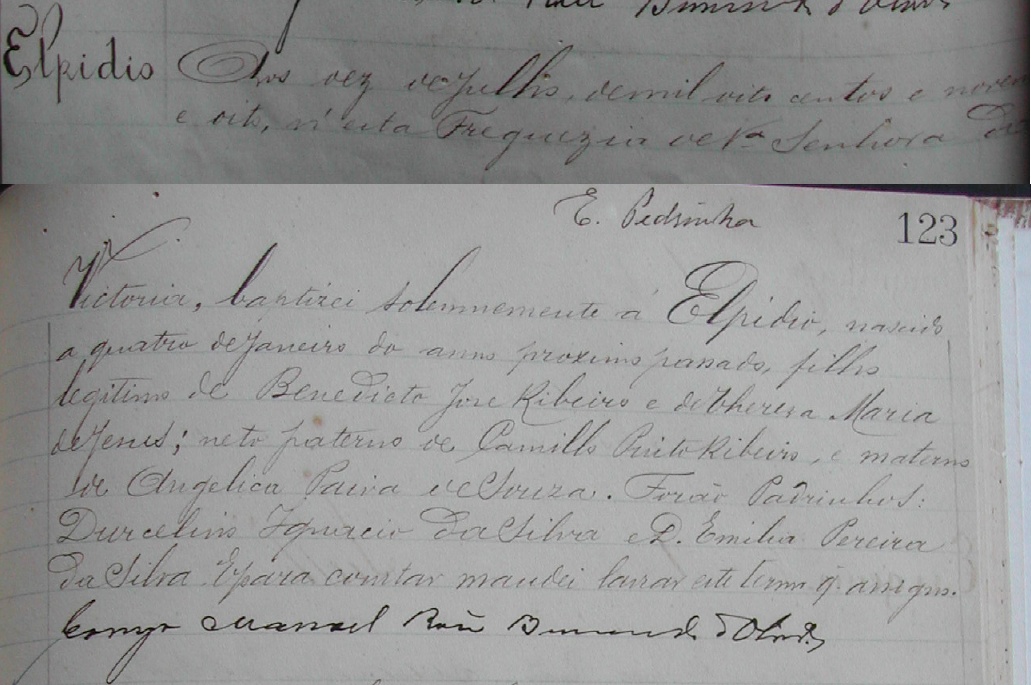 Elpidio
Aos dez de Julho, de mil oito centos e noven
e oito, n'esta Freguezia de Na Senhora da
E. Pedrinha
123
Victoria, baptizei solemnemente á Elpidio, nascido
a quatro de Janeiro do anno proximo passado, filho
legitimo de Benedicto José Ribeiro e de Thereza Maria
de Jesus; neto paterno de Camillo Pinto Ribeiro, e materno
de Angelica Paiva de Souza. Forão Padrinhos:
Durcelino Ignacio da Silva e D. Emilia Pereira
da Silva E para constar mandei lavrar este termo q. assigno.
Conego Manoel